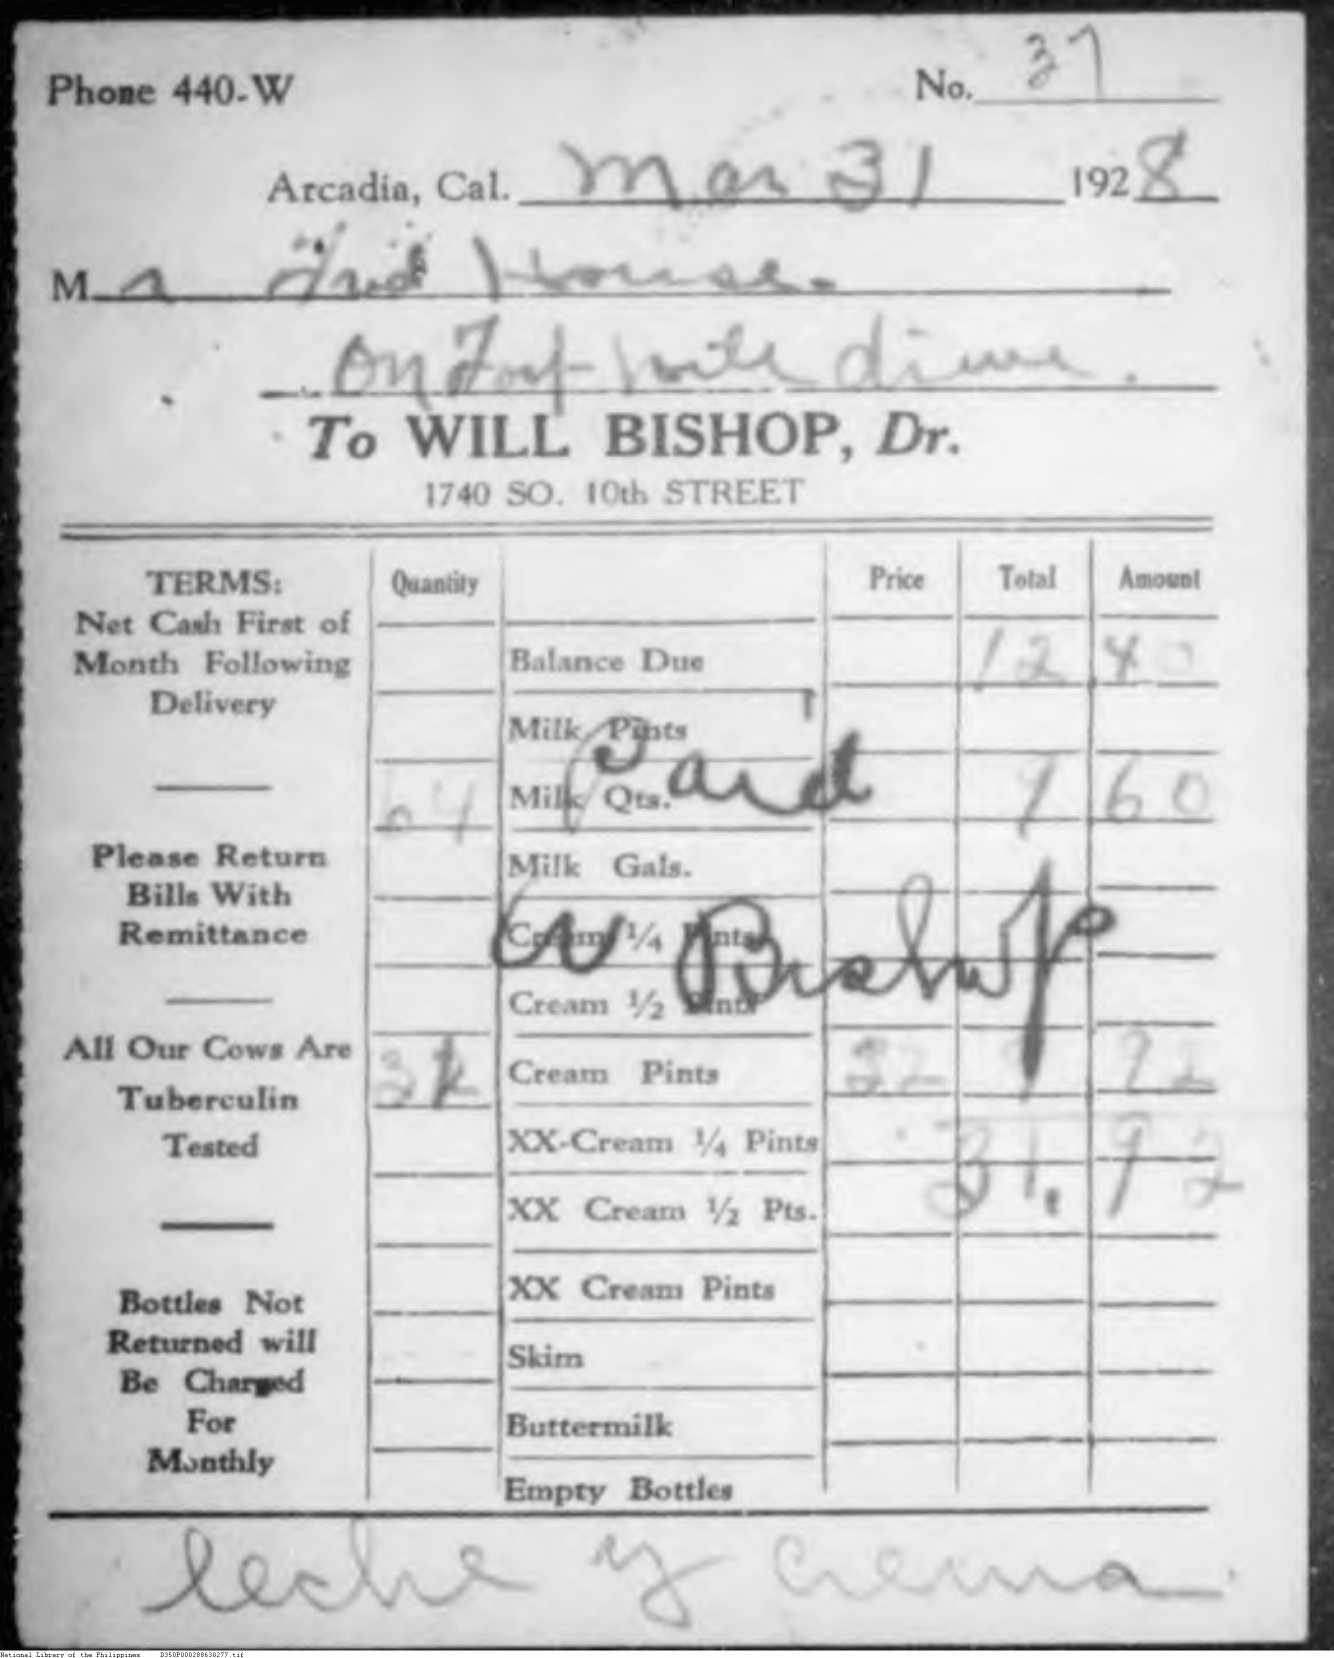 Phone 440-W
No. 37
Arcadia, Cal. Mar 31 1928
M House.
On Foot hill
To WILL BISHOP, Dr.
1740 SO. 10th STREET
TERMS:
Net Cash First of
Month Following
Delivery
Please Return
Bills With
Remittance
All Our Cows Are
Tuberculin
Tested
Bottles Not
Returned will
Be Charged
For
Monthly
Quantity Price Total Amount
Balance Due 12 40
Milk Pints
64 Milk Qts. 9 60
Milk Gals.
Cream 1/4 Pints
Cream 1/2 Pints
Cream Pints 32 9 92
XX-Cream 1/4 Pints 31.92
XX Cream 1/2 Pts.
XX Cream Pints
Skim
Buttermilk
Empty Bottles
Paid
W Bishop
leche y crema
National Library of the Philippines D350P000288630277.tif